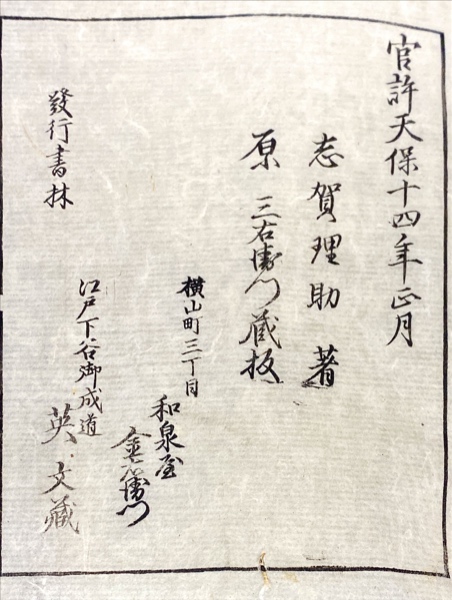 官許天保十四年正月
志賀理助著
原三右衛門蔵板
發行書林
横山町三丁目
和泉屋
金右衛門
江戸下谷御成道
英文藏